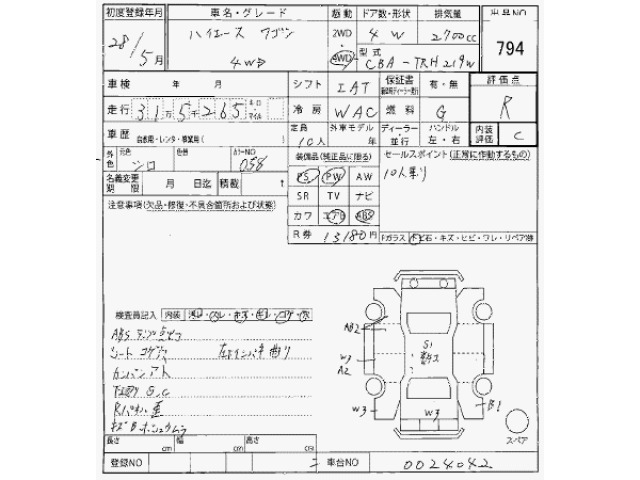 初度登録年月 車名・グレード 駆動 ドア数・形状 排気量 出品NO
28/5月 ハイエース ワゴン 2WD 4 W 2700cc 794
4WD 4WD 型式 CBA-TRH219W
車検 年 月 シフト IAT 保証書 有・無 評価点
走行 31万5千265 キロ マイル 冷房 WAC 燃料 G R
車歴 自家用・レンタ・事業用( ) 定員 10人 外車モデル 年 ディーラー 並行 ハンドル 左・右 内装評価 C
外色 元色 シロ 色替 カラーNO 058 装備品(純正品に限る) セールスポイント(正常に作動するもの)
名義変更期限 月 日迄 積載 t PS PW AW 10人乗り
注意事項(欠品・修復・不具合箇所および状態) SR TV ナビ
カワ エアB ABS
R券 13180円 Fガラス トビ石・キズ・ヒビ・ワレ・リペア跡
検査員記入 内装
ABSランプ点灯
シート コゲ穴
カンバンアト
下廻り S.C
AB2
S1
W3
A2
W3
W3
B1
スペア
長さ cm 幅 cm 高さ cm
登録NO 車台NO 0024042